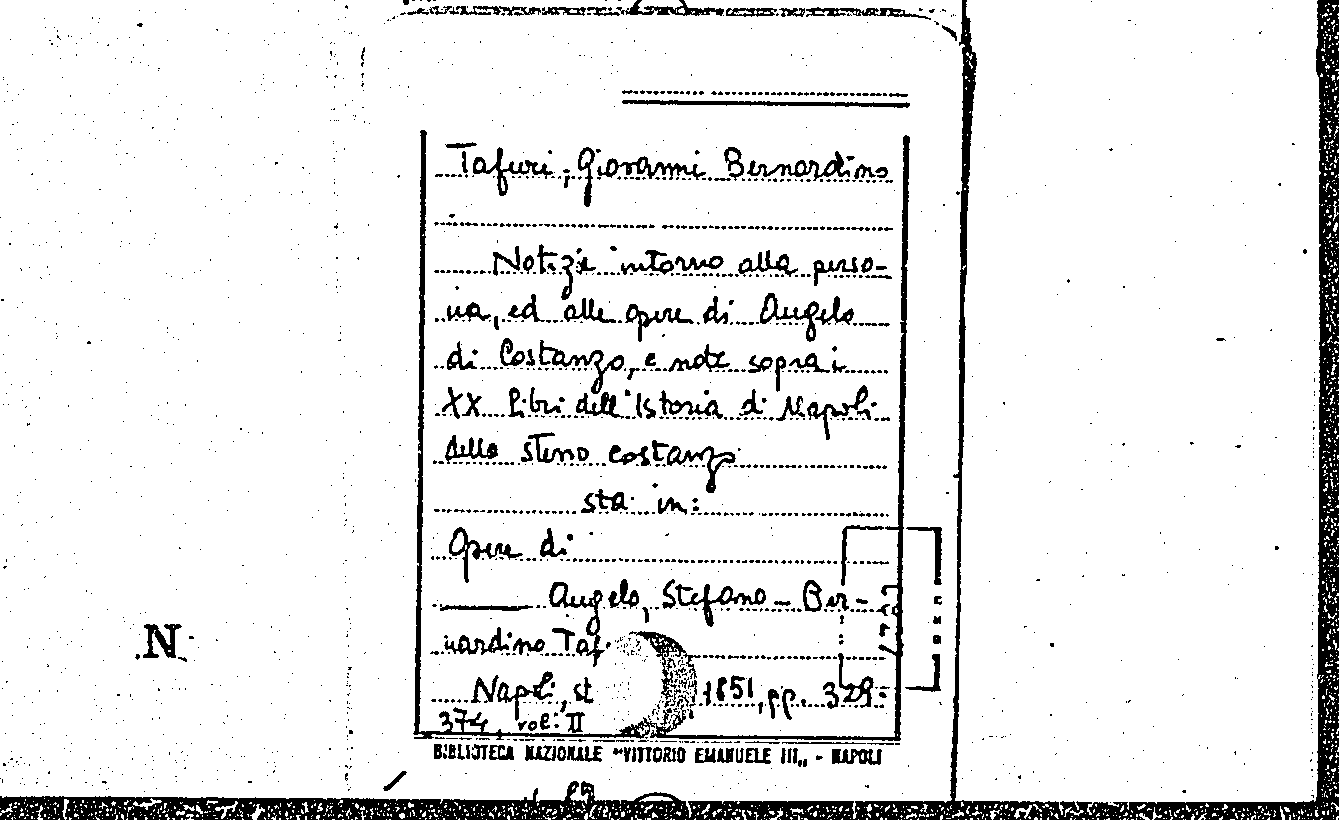 Tafuri, Giovanni Bernardino
Notizie intorno alla perso-
na, ed alle opere di Angelo
di Costanzo, e note sopra i
XX libri dell'Istoria di Napoli
dello stesso costanzo
sta in:
Opere di
Angelo, Stefano - Ber-
nardino Taf
Napoli, st 1851, pp. 329-
374, vol: II
BIBLIOTECA NAZIONALE "VITTORIO EMANUELE III„ - NAPOLI
N